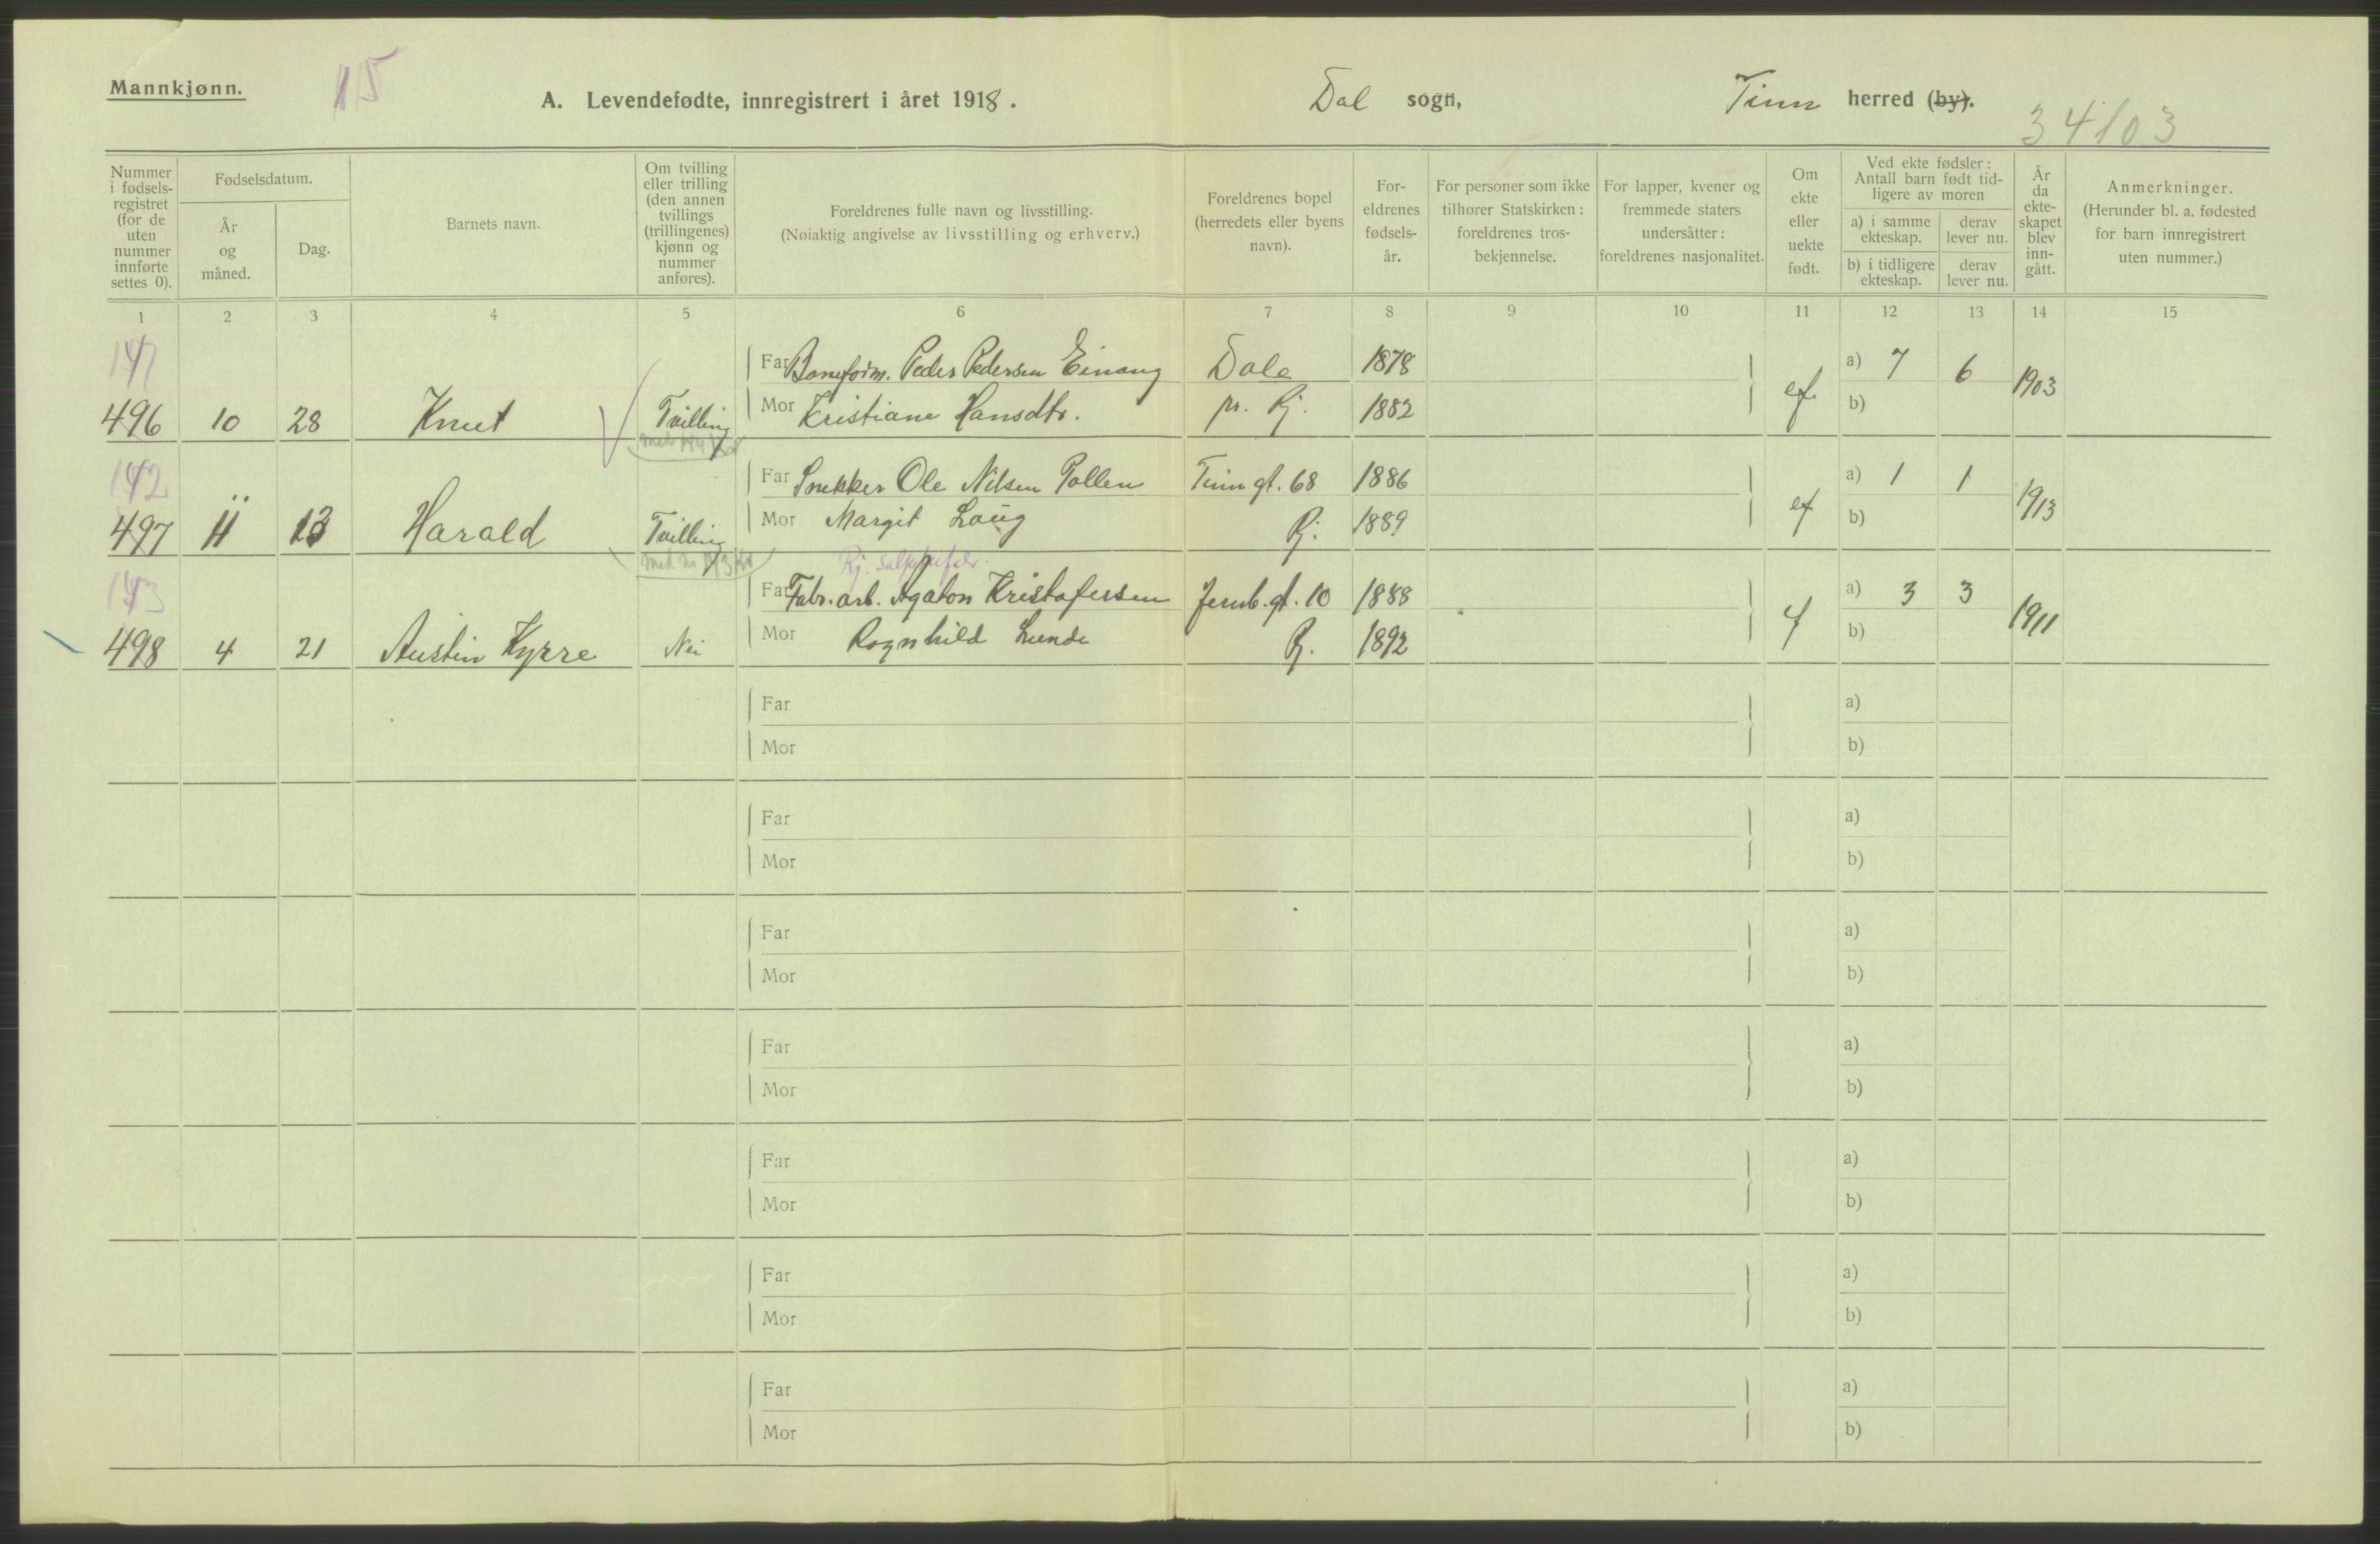 Mannkjønn.
15
A. Levendefødte, innregistrert i året 1918.
Dal sogn,
Tinn herred (by).
34103
Nummer i fødsels-registret (for de uten nummer innførte settes 0).
Fødselsdatum.
År og måned.
Dag.
Barnets navn.
Om tvilling eller trilling (den annen tvillings (trillingenes) kjønn og nummer anføres).
Foreldrenes fulle navn og livsstilling.
(Nøiaktig angivelse av livsstilling og erhverv.)
Foreldrenes bopel (herredets eller byens navn).
For-eldrenes fødsels-år.
For personer som ikke tilhører Statskirken: foreldrenes tros-bekjennelse.
For lapper, kvener og fremmede staters undersåtter: foreldrenes nasjonalitet.
Om ekte eller uekte født.
Ved ekte fødsler: Antall barn født tid-ligere av moren
a) i samme ekteskap.
derav lever nu.
b) i tidligere ekteskap.
derav lever nu.
År da ekte-skapet blev inn-gått.
Anmerkninger.
(Herunder bl. a. fødested for barn innregistrert uten nummer.)
1 2 3 4 5 6 7 8 9 10 11 12 13 14 15
141
Far Baneform. Peder Pedersen Einang Dale 1878 a) 7 6 1903
496 10 28 Knut Tvilling Mor Kristiane Hansdtr. pr. Rj. 1882 ef. b)
142
Far Snekker Ole Nilsen Pollen Tinngt. 68 1886 a) 1 1 1913
497 11 13 Harald Tvilling Mor Margit Laug Rj. 1889 ef b)
med nr
143
Rj. Salpeterfabr.
Far Fabr. arb. Agaton Kristofersen Jernb.gt. 10 1888 a) 3 3 1911
498 4 21 Austin Kyrre Nei Mor Rognhild Lunde Rj. 1892 b)
Far a)
Mor b)
Far a)
Mor b)
Far a)
Mor b)
Far a)
Mor b)
Far a)
Mor b)
Far a)
Mor b)
Far a)
Mor b)